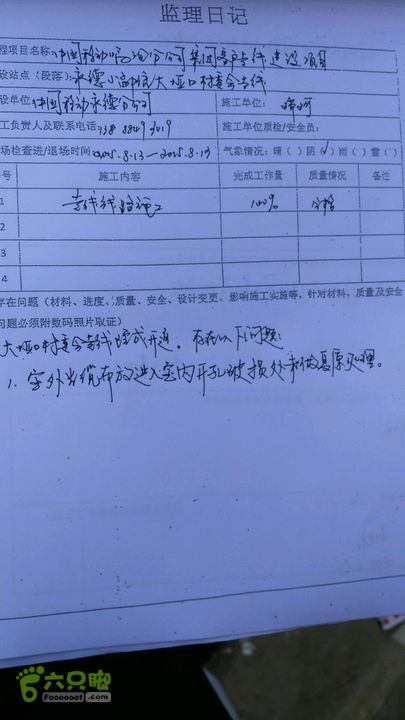 监理日记
程项目名称:中国移动临沧分公司集团客户专线建设项目
设站点（段落）:永德 大垭口村委会专线
设单位:中国移动永德分公司 施工单位:
工负责人及联系电话:138 8849 3019 施工单位质检/安全员:
场检查进/退场时间:2015.8.13—2015.8.13 气象情况：晴（ ）阴（√）雨（ ）雷（ ）
号 施工内容 完成工作量 质量情况 备注
1 专线线路施工 100% 合格
2
3
4
存在问题（材料、进度、质量、安全、设计变更、影响施工实施等，针对材料、质量及安全
问题必须附数码照片取证）
大垭口村委会专线完成开通，存在以下问题：
1、室外光缆布放进入室内开孔破损处未做复原处理。
六只脚
Foooooot.com